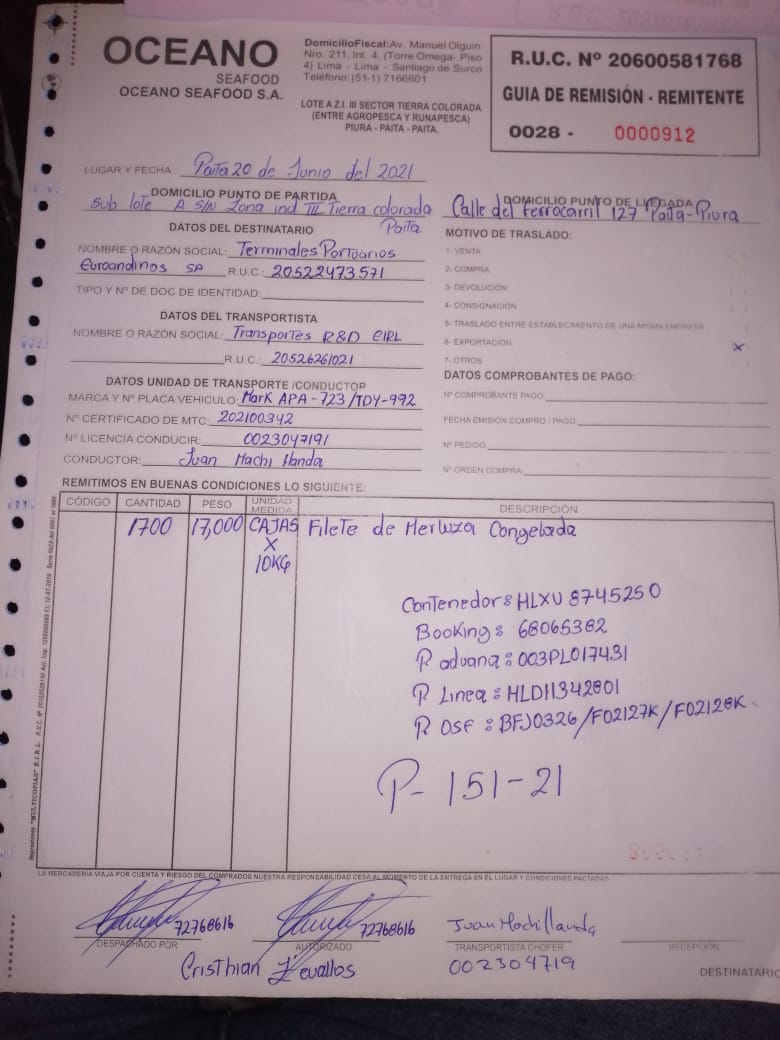 OCEANO
SEAFOOD
OCEANO SEAFOOD S.A.
Domicilio Fiscal: Av. Manuel Olguin
Nro. 211, Int. 4, (Torre Omega- Piso
4) Lima - Lima - Santiago de Surco
Teléfono: (51-1) 7166601
LOTE A Z.I. III SECTOR TIERRA COLORADA
(ENTRE AGROPESCA Y RUNAPESCA)
PIURA - PAITA - PAITA.
R.U.C. Nº 20600581768
GUIA DE REMISIÓN - REMITENTE
0028 - 0000912
LUGAR Y FECHA : Paita 20 de Junio del 2021
DOMICILIO PUNTO DE PARTIDA
Sub lote A S/N Zona ind III Tierra colorada
Paita
DOMICILIO PUNTO DE LLEGADA
Calle del ferrocarril 127 Paita-Piura
DATOS DEL DESTINATARIO
NOMBRE O RAZÓN SOCIAL: Terminales Portuarios
Euroandinos SA R.U.C.: 20522473571
TIPO Y Nº DE DOC DE IDENTIDAD:
DATOS DEL TRANSPORTISTA
NOMBRE O RAZÓN SOCIAL: Transportes R&D EIRL
R.U.C.: 20526261021
DATOS UNIDAD DE TRANSPORTE /CONDUCTOR
MARCA Y Nº PLACA VEHICULO: Mark APA-723/TDY-992
Nº CERTIFICADO DE MTC: 202100342
Nº LICENCIA CONDUCIR: 0023047191
CONDUCTOR: Juan Machi Handa
MOTIVO DE TRASLADO:
1- VENTA
2- COMPRA
3- DEVOLUCION
4- CONSIGNACIÓN
5- TRASLADO ENTRE ESTABLECIMIENTO DE UNA MISMA EMPRESA
6- EXPORTACIÓN x
7- OTROS
DATOS COMPROBANTES DE PAGO:
Nº COMPROBANTE PAGO
FECHA EMISIÓN COMPRO / PAGO:
Nº PEDIDO:
Nº ORDEN COMPRA:
REMITIMOS EN BUENAS CONDICIONES LO SIGUIENTE:
CÓDIGO CANTIDAD PESO UNIDAD MEDIDA DESCRIPCIÓN
1700 17,000 CAJAS Filete de Merluza Congelada
X
10KG
Contenedor: HLXU 8745250
Booking: 68065382
P aduana: 003PL017431
P Linea: HLD11342801
P OSF: BFJ0326/F02127K/F02128K
P- 151-21
LA MERCADERÍA VIAJA POR CUENTA Y RIESGO DEL COMPRADOS NUESTRA RESPONSABILIDAD CESA AL MOMENTO DE LA ENTREGA EN EL LUGAR Y CONDICIONES PACTADAS
72768616
DESPACHADO POR
72768616
AUTORIZADO
Cristhian Zevallos
Juan Machi Handa
TRANSPORTISTA CHOFER
002304719
RECEPCIÓN
DESTINATARIO